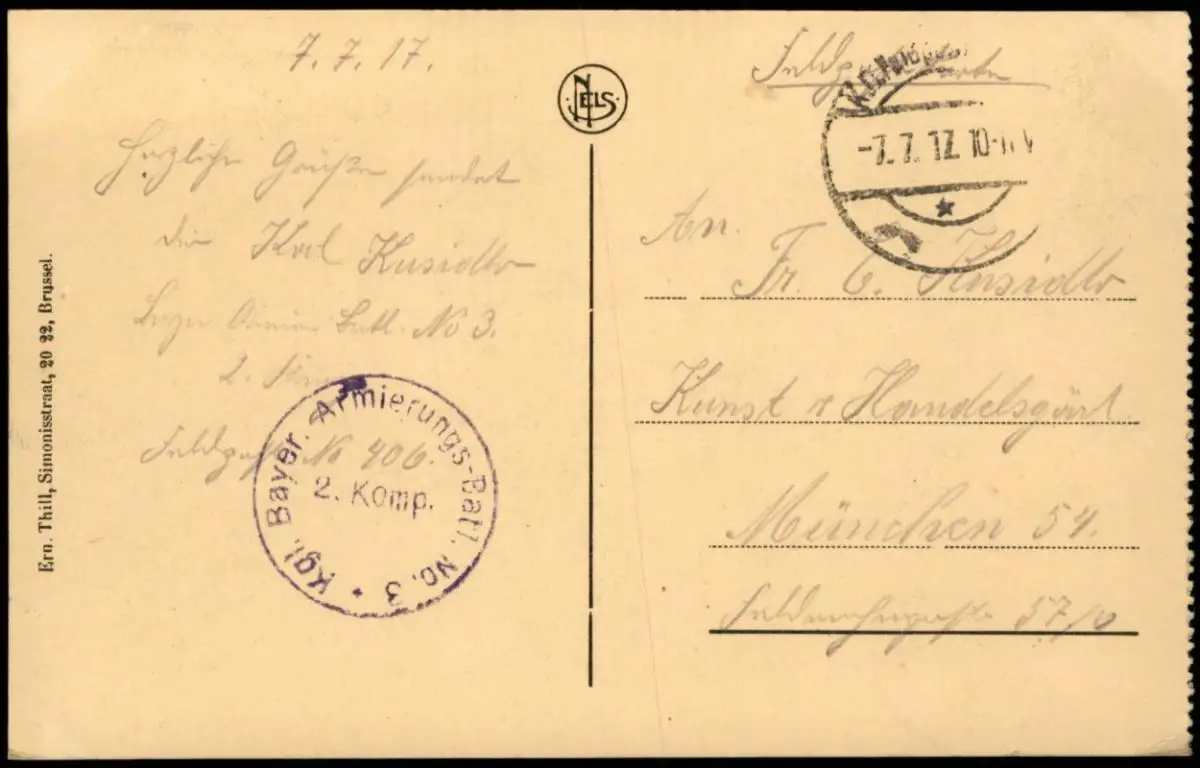 7. 7. 17.
Herzliche Grüße sendet
dir Karl Kusidlo
Bayer Armier Batl. No 3.
2.
Feldpost No 406.
Kgl. Bayer. Armierungs-Batl. No. 3
2. Komp.
Ern. Thill, Simonisstraat, 20 22, Brussel.
NELS
Feldpostkarte
-7. 7. 17. 10-
An.
Fr. C. Kusidlo
Kunst Handelsgärt
München 54.
57/0